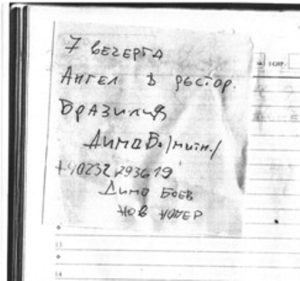 7 ВЕЧЕРТА
АНГЕЛ В РЕСТОР.
БРАЗИЛИЯ
ДИМО Б. /МИТН./
ДИМО БОЕВ
НОВ НОМЕР
13
14